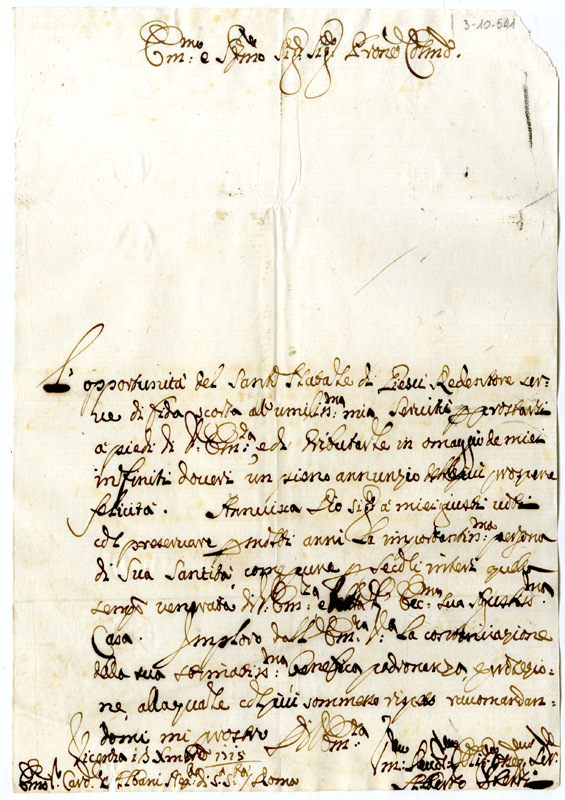 3-10-541
Em:mo e Rmo Sig:r Sig:r Prone Colmo.
L'opportunità del Santo Natale di Giesù Redentore ser=
ve di fida scorta al'umiliss:ma mia Servitù p prostarsi
a piedi di V: Em:za, e di tributarle in omaggio de miei
infiniti doveri un pieno annunzio prospere
felicità. Annuisca Dio Sig:r a miei giusti voti
col preservare p molti anni la importantiss:ma persona
di Sua Santità, come pure p secoli interi quella
sempre venerata di V: Em:za e Ecc:ma sua
Casa. Imploro dall'Em:za V:ra la continuazione
della sua benefica padronanza, e protezio=
ne, alla quale col più sommesso rispetto raccomandan=
domi mi prostro Di V: Em:za
Vicenza 1713
Emo Card:le Albani Roma
Alberto